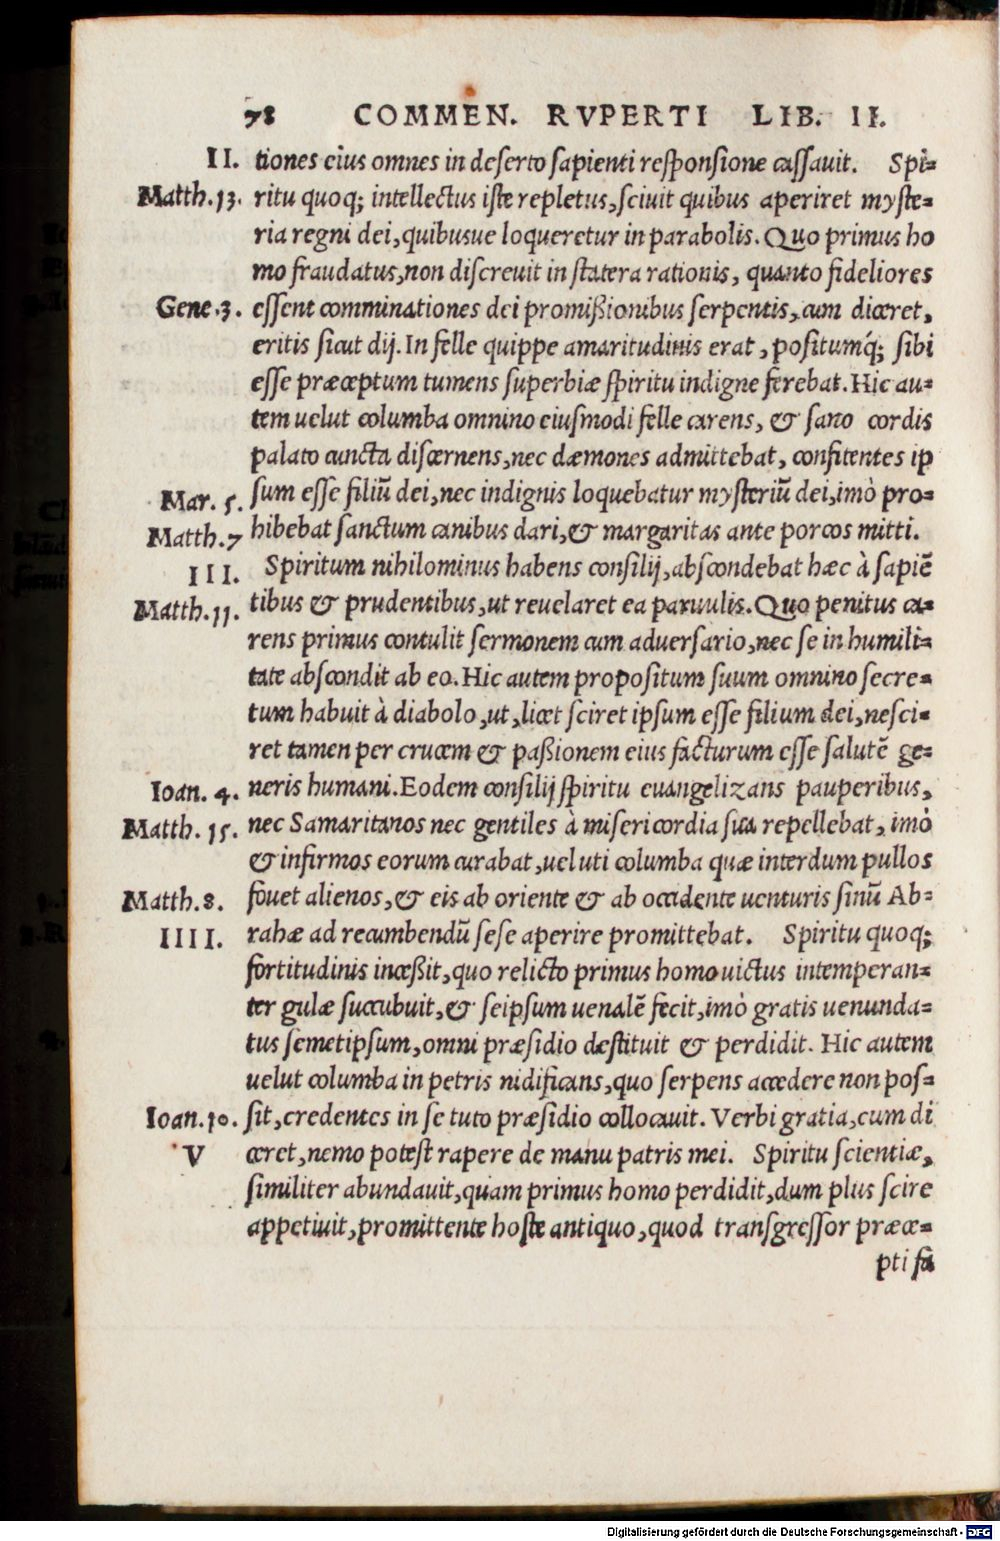 78 COMMEN. RVPERTI LIB. II.
II. tiones eius omnes in deserto sapienti responsione cassauit. Spi-
Matth.13. ritu quoq; intellectus iste repletus, sciuit quibus aperiret myste-
ria regni dei, quibusue loqueretur in parabolis. Quo primus ho
mo fraudatus, non discreuit in statera rationis, quanto fideliores
Gene.3. essent comminationes dei promißionibus serpentis, cum diceret,
eritis sicut dij. In felle quippe amaritudinis erat, positumq́; sibi
esse præceptum tumens superbiæ spiritu indigne ferebat. Hic au-
tem uelut columba omnino eiusmodi felle carens, & sano cordis
palato cuncta discernens, nec dæmones admittebat, confitentes ip
Mar. 5. sum esse filiũ dei, nec indignis loquebatur mysteriũ dei, imò pro-
Matth.7 hibebat sanctum canibus dari, & margaritas ante porcos mitti.
III. Spiritum nihilominus habens consilij, abscondebat hæc à sapiẽ
Matth.11. tibus & prudentibus, ut reuelaret ea paruulis. Quo penitus ca-
rens primus contulit sermonem cum aduersario, nec se in humili-
tate abscondit ab eo. Hic autem propositum suum omnino secre-
tum habuit à diabolo, ut, licet sciret ipsum esse filium dei, nesci-
ret tamen per crucem & paßionem eius facturum esse salutẽ ge-
Ioan. 4. neris humani. Eodem consilij spiritu euangelizans pauperibus,
Matth. 15. nec Samaritanos nec gentiles à misericordia sua repellebat, imò
& infirmos eorum curabat, ueluti columba quæ interdum pullos
Matth.8. fouet alienos, & eis ab oriente & ab occidente uenturis sinũ Ab-
IIII. rahæ ad recumbendũ sese aperire promittebat. Spiritu quoq;
fortitudinis inceßit, quo relicto primus homo uictus intemperan-
ter gulæ succubuit, & seipsum uenalẽ fecit, imò gratis uenunda-
tus semetipsum, omni præsidio destituit & perdidit. Hic autem
uelut columba in petris nidificans, quo serpens accedere non pos-
Ioan.10. sit, credentes in se tuto præsidio collocauit. Verbi gratia, cum di
V ceret, nemo potest rapere de manu patris mei. Spiritu scientiæ,
similiter abundauit, quam primus homo perdidit, dum plus scire
appetiuit, promittente hoste antiquo, quod transgressor præce-
pti fa
Digitalisierung gefördert durch die Deutsche Forschungsgemeinschaft - DFG